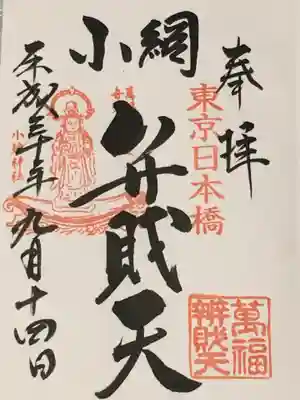 奉拝
東京日本橋
小網
弁財天
小網神社
萬福
辨財天
平成三十年九月十四日